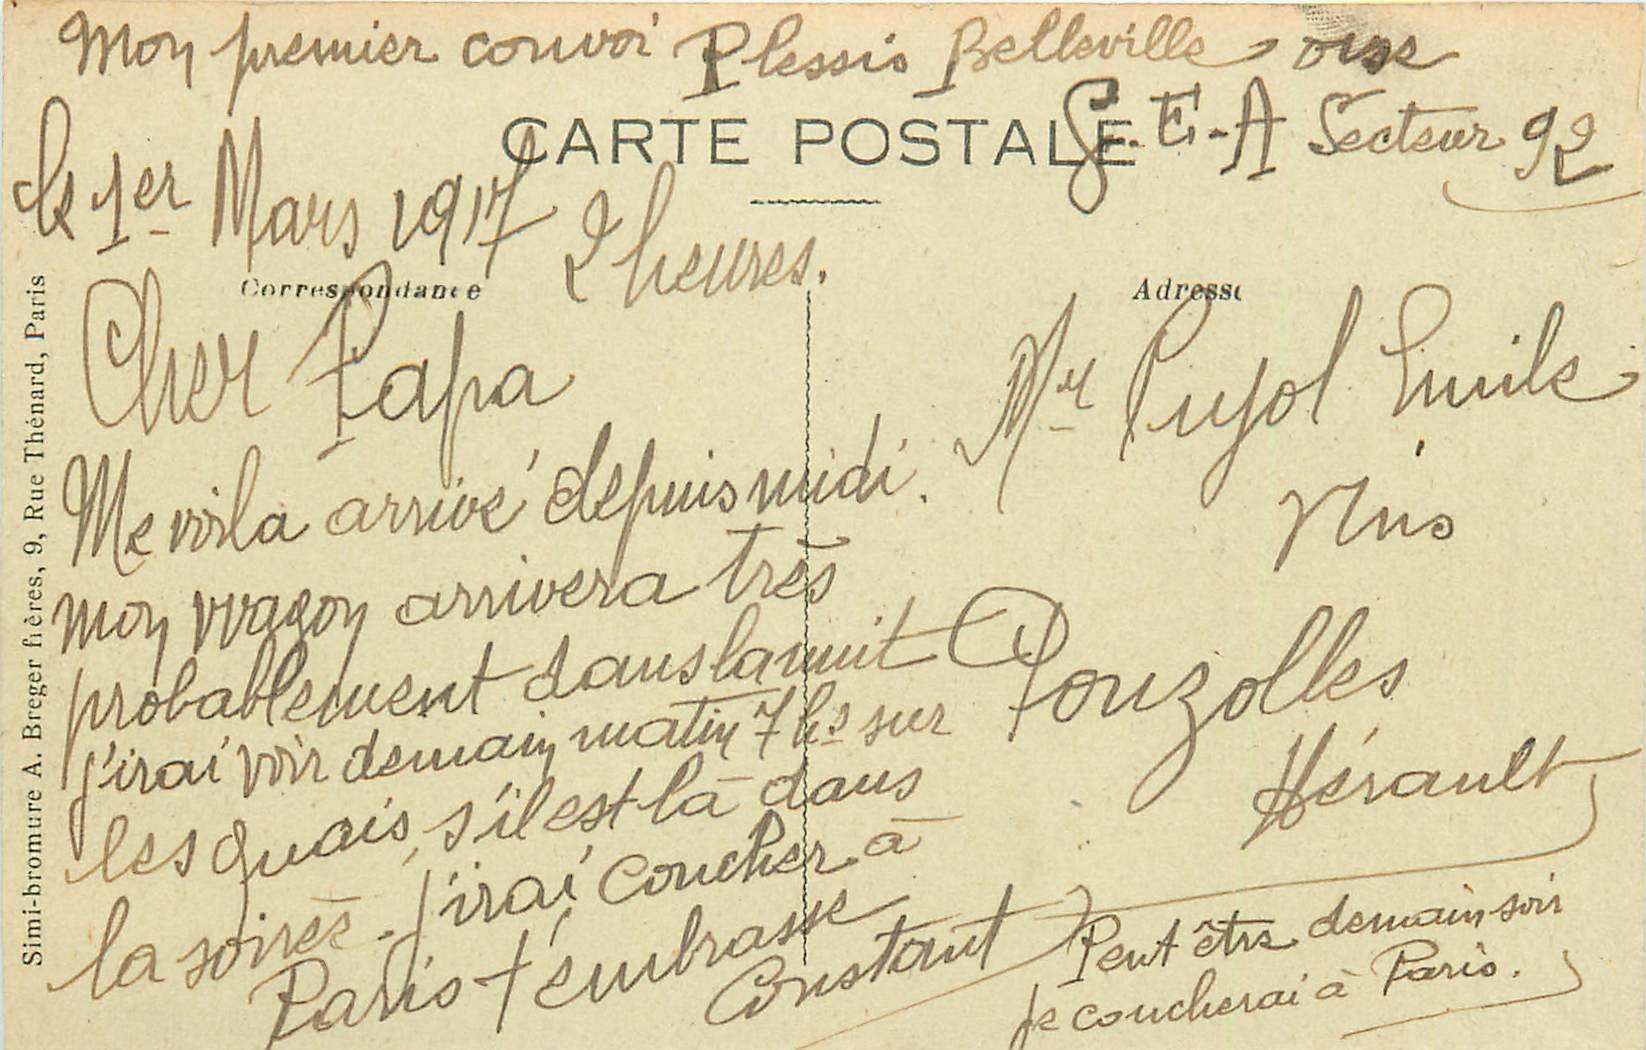 Mon premier convoi Plessis Belleville oise
CARTE POSTALE
S.E.A Secteur 92
le 1er Mars 1917 2 heures.
Correspondance
Adresse
Cher Papa
Me voila arrivé depuis midi.
mon wagon arrivera très
probablement dans la nuit
j'irai voir demain matin 7 hs sur
les quais, s'il est là dans
la soirée - j'irai coucher à
Paris t'embrasse
Constant
Mr Pujol Emile
Vins
Pouzolles
Hérault
Peut être demain soir
je coucherai à Paris.
Simi-bromure A. Breger frères, 9, Rue Thénard, Paris